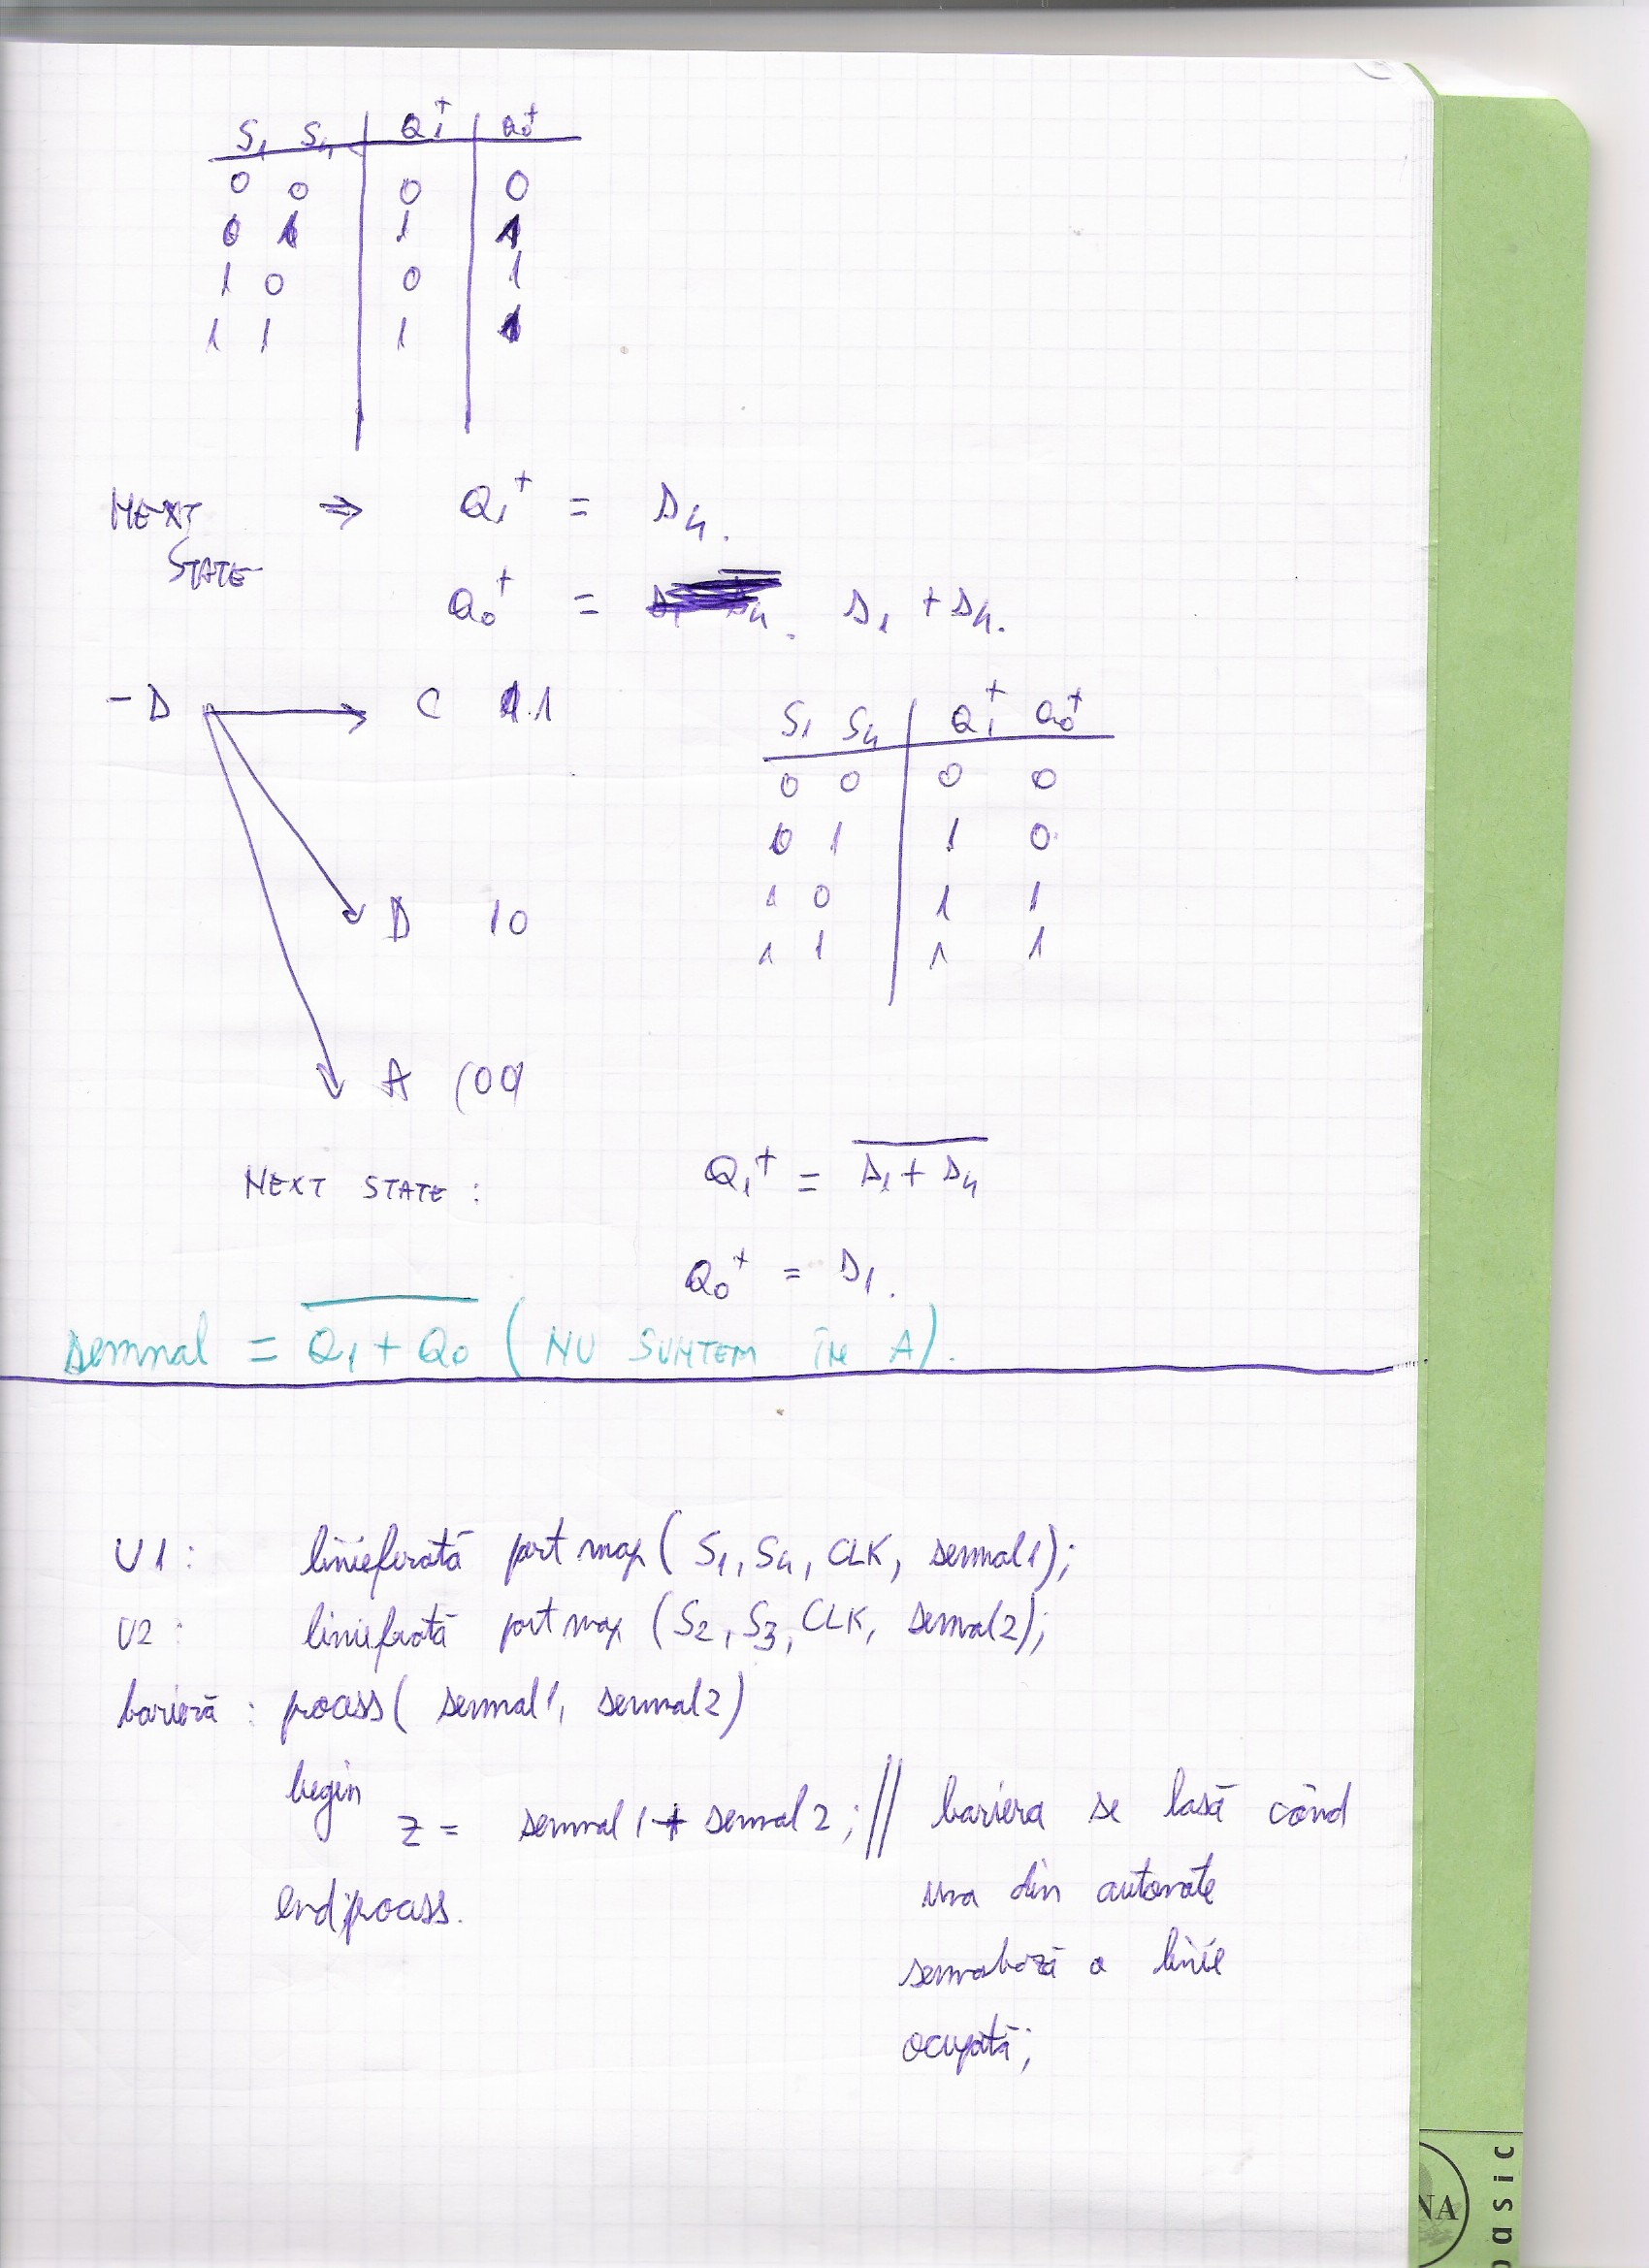 S1 S4 Q1+ Q0+
0 0 0 0
0 1 1 1
1 0 0 1
1 1 1 1
NEXT STATE ⇒ Q1+ = S4.
Q0+ = S1 + S4.
- D → C 11
D 10
A (00)
S1 S4 Q1+ Q0+
0 0 0 0
0 1 1 0
1 0 1 1
1 1 1 1
NEXT STATE : Q1+ = \overline{S1 + S4}
Q0+ = S1.
semnal = \overline{Q1 + Q0} (NU SUNTEM ÎN A).
U1 : linieferată port map ( S1, S4, CLK, semnal1);
U2 : linieferată port map (S2, S3, CLK, semnal2);
barieră : process( semnal1, semnal2)
begin
z = semnal1 + semnal2 ; // bariera se lasă când
una din automate
semnalează o linie
ocupată;
end process.
NA
basic